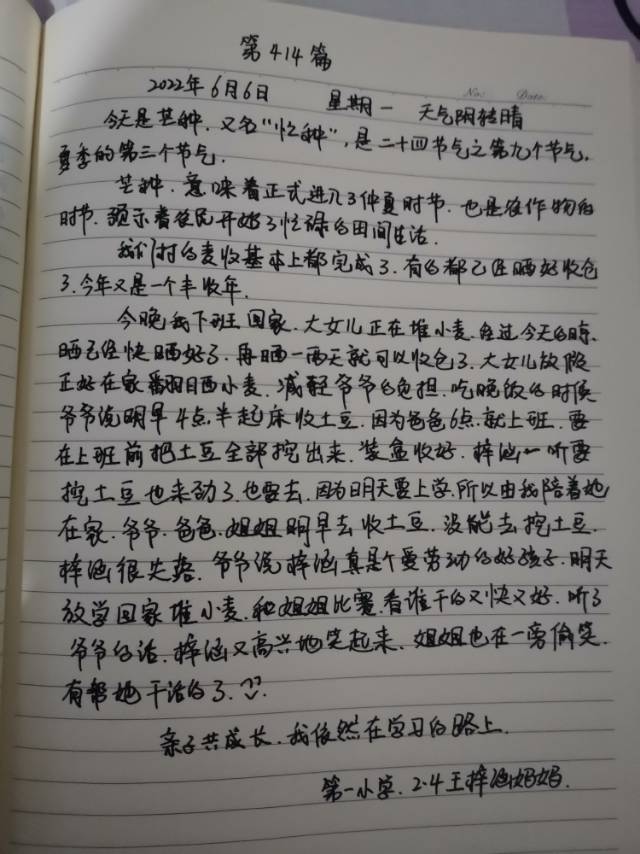 第414篇
No: Date:
2022年6月6日 星期一 天气阴转晴
今天是芒种.又名"忙种",是二十四节气之第九个节气.
夏季的第三个节气.
芒种.意味着正式进入了仲夏时节.也是农作物的
时节.预示着农民开始了忙碌的田间生活.
我们村的麦收基本上都完成了.有的都已经晒好收仓
了.今年又是一个丰收年.
今晚我下班回家.大女儿正在堆小麦.经过今天的晾
晒已经快晒好了.再晒一两天就可以收仓了.大女儿放假
正好在家翻晒小麦.减轻爷爷的负担.吃晚饭的时候
爷爷说明早4点半起床收土豆.因为爸爸6点.就上班.要
在上班前把土豆全部挖出来.装盘收好.梓涵一听要
挖土豆也来劲了.也要去.因为明天要上学.所以由我陪着她
在家.爷爷.爸爸.姐姐明早去收土豆.没能去挖土豆.
梓涵很失落.爷爷说梓涵真是个爱劳动的好孩子.明天
放学回家堆小麦.和姐姐比赛.看谁干的又快又好.听了
爷爷的话.梓涵又高兴地笑起来.姐姐也在一旁偷笑.
有帮她干活的了.
亲子共成长.我依然在学习的路上.
第一小学.2.4王梓涵妈妈.